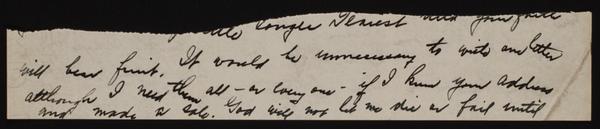 little longer Dearest and your faith
will bear fruit. It would be unnecessary to write one letter
although I need them all - or every one - if I knew your address
and made a sale. God will not let me die or fail until